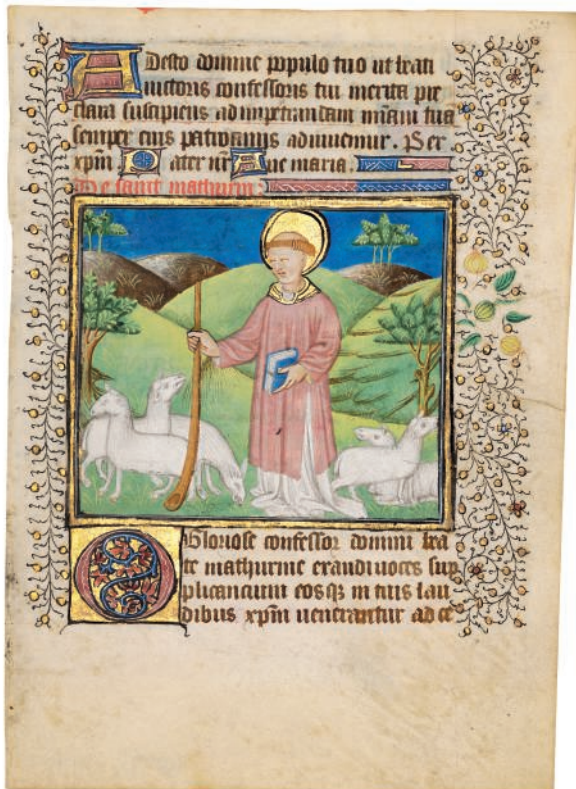 Adesto domine populo tuo ut beati
uictoris confessoris tui merita pre
clara suscipiens ad impetrandam mīam tuā
semper eius patrocīniis adiuuemur. Per
xp̄m. Pater nr̄ Aue maria.
De sanct mathurin:
O Gloriose confessor domini bea
te mathurine exaudi uoces sup
plicancium eos qꝫ in tuis lau
dibus xp̄m uenerantur ad ce